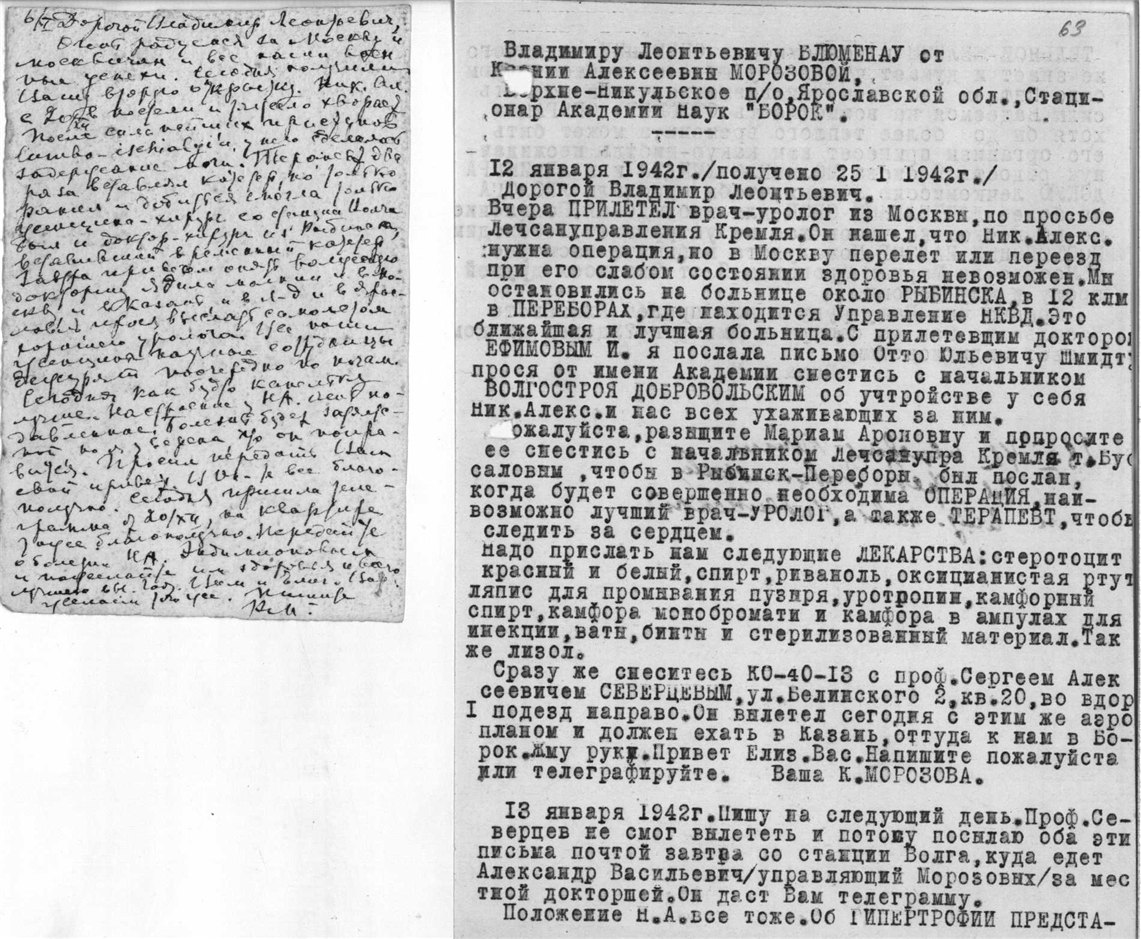 6/I Дорогой Владимир Леонтьевич,
Очень радуемся за Москву и
москвичей и все наши воен
ные успехи. Сегодня получили
Ник. Ал.
с 20/XII в постели и тяжело хворает
После сильнейших приступов
lumbo-ischialgia, у него сделалась
задержание мочи. два
раза вставляли катетер, но только
смогла только
хирург со станции Волга
Был и доктор-хирург из Рыбинска,
вставивший временный катетер
Завтра привезем опять
в Казань и в
хорошего уролога. Все наши
научные сотрудники
дежурят поочередно по ночам.
Сегодня как будто капельку
лучше. Настроение у Н.А. очень по-
давленное.
что он попра-
вится. Просил передать Вам
свой привет. У О.Ю. все благо-
получно. Сегодня пришла теле-
грамма от 20/XII, на квартире
тоже благополучно. Передайте
о болезни Н.А.
К.М.
63
Владимиру Леонтьевичу БЛЮМЕНАУ от
К нии Алексеевны МОРОЗОВОЙ,
ерхне-Никульское п/о,Ярославской обл.,Стаци-
онар Академии Наук "БОРОК".
12 января 1942г./получено 25 I 1942г./
Дорогой Владимир Леонтьевич.
Вчера ПРИЛЕТЕЛ врач-уролог из Москвы,по просьбе
Лечсануправления Кремля.Он нашел,что Ник.Алекс.
нужна операция,но в Москву перелет или переезд
при его слабом состоянии здоровья невозможен.Мы
остановились на больнице около РЫБИНСКА,в 12 клм
в ПЕРЕБОРАХ,где находится Управление НКВД.Это
ближайшая и лучшая больница.С прилетевшим доктором
ЕФИМОВЫМ И. я послала письмо Отто Юльевичу Шмидт
прося от имени Академии снестись с начальником
ВОЛГОСТРОЯ ДОБРОВОЛЬСКИМ об учтройстве у себя
Ник.Алекс.и нас всех ухаживающих за ним.
ожалуйста,разыщите Мариам Ароновну и попросите
ее снестись с начальником Лечсанупра Кремля т.Бус
саловым ,чтобы в Рыбинск-Переборы был послан,
когда будет совершенно необходима ОПЕРАЦИЯ,наи-
возможно лучший врач-УРОЛОГ,а также ТЕРАПЕВТ,чтобы
следить за сердцем.
Надо прислать нам следующие ЛЕКАРСТВА:стеротоцит
красный и белый,спирт,риваноль,оксицианистая ртут
ляпис для промывания пузыря,уротропин,камфорный
спирт,камфора монобромати и камфора в ампулах для
инекции,ваты,бинты и стерилизованный материал.Так
же лизол.
Сразу же снеситесь КО-40-13 с проф.Сергеем Алек
сеевичем СЕВЕРЦЕВЫМ,ул.Белинского 2,кв.20,во вдор
I подезд направо.Он вылетел сегодня с этим же аэро
планом и должен ехать в Казань,оттуда к нам в Бо-
рок.Жму руку.Привет Елиз.Вас.Напишите пожалуйста
или телеграфируйте. Ваша К.МОРОЗОВА.
13 января 1942г.Пишу на следующий день.Проф.Се-
верцев не смог вылететь и потому посылаю оба эти
письма почтой завтра со станции Волга,куда едет
Александр Васильевич/управляющий Морозовых/за мес
тной докторшей.Он даст Вам телеграмму.
Положение Н.А.все тоже.Об ГИПЕРТРОФИИ ПРЕДСТА-